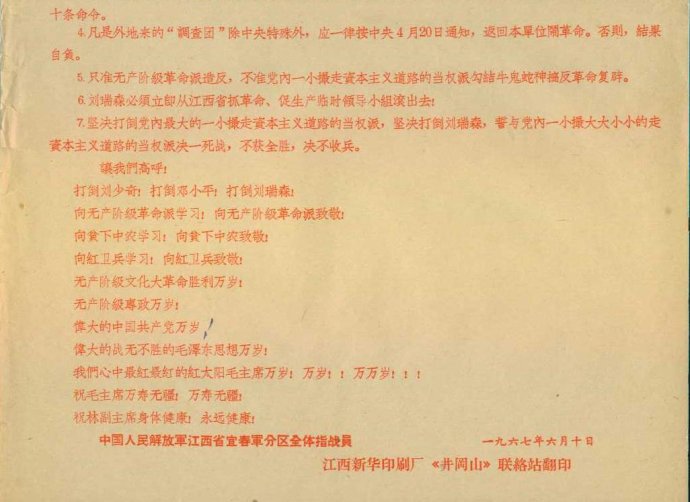 十条命令。
4.凡是外地来的“調查团”除中央特殊外，应一律按中央4月20日通知，返回本單位鬧革命。否則，結果
自負。
5.只准无产阶級革命派造反，不准党內一小撮走資本主义道路的当权派勾結牛鬼蛇神搞反革命复辟。
6.刘瑞森必須立即从江西省抓革命、促生产临时領导小組滾出去！
7.坚决打倒党內最大的一小撮走資本主义道路的当权派，坚决打倒刘瑞森，誓与党內一小撮大大小小的走
資本主义道路的当权派决一死战，不获全胜，决不收兵。
讓我們高呼：
打倒刘少奇！打倒邓小平！打倒刘瑞森！
向无产阶級革命派学习！向无产阶級革命派致敬！
向貧下中农学习！向貧下中农致敬！
向紅卫兵学习！向紅卫兵致敬！
无产阶級文化大革命胜利万岁！
无产阶級專政万岁！
偉大的中国共产党万岁！
偉大的战无不胜的毛澤东思想万岁！
我們心中最紅最紅的紅太阳毛主席万岁！万岁！！万万岁！！！
祝毛主席万寿无疆！万寿无疆！
祝林副主席身体健康！永远健康！
中国人民解放軍江西省宜春軍分区全体指战員 一九六七年六月十日
江西新华印刷厂《井岡山》联絡站翻印